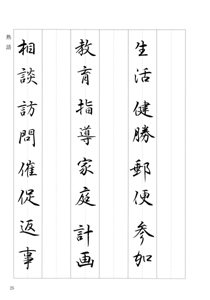 生活健勝郵便参加
教育指導家庭計画
相談訪問催促返事
熟語